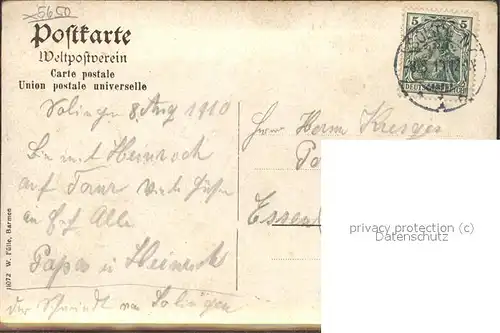 5650
Postkarte
Weltpostverein
Carte postale
Union postale universelle
5 5
DEUTSCHES REICH
Solingen 8 Aug 1910
Bin mit Heinrich
auf Tour viele Grüße
an Euch Alle
Papa u Heinrich
Solingen
Herrn Herm Kresges
Essen
11072 W. Fülle, Barmen
privacy protection (c)
Datenschutz